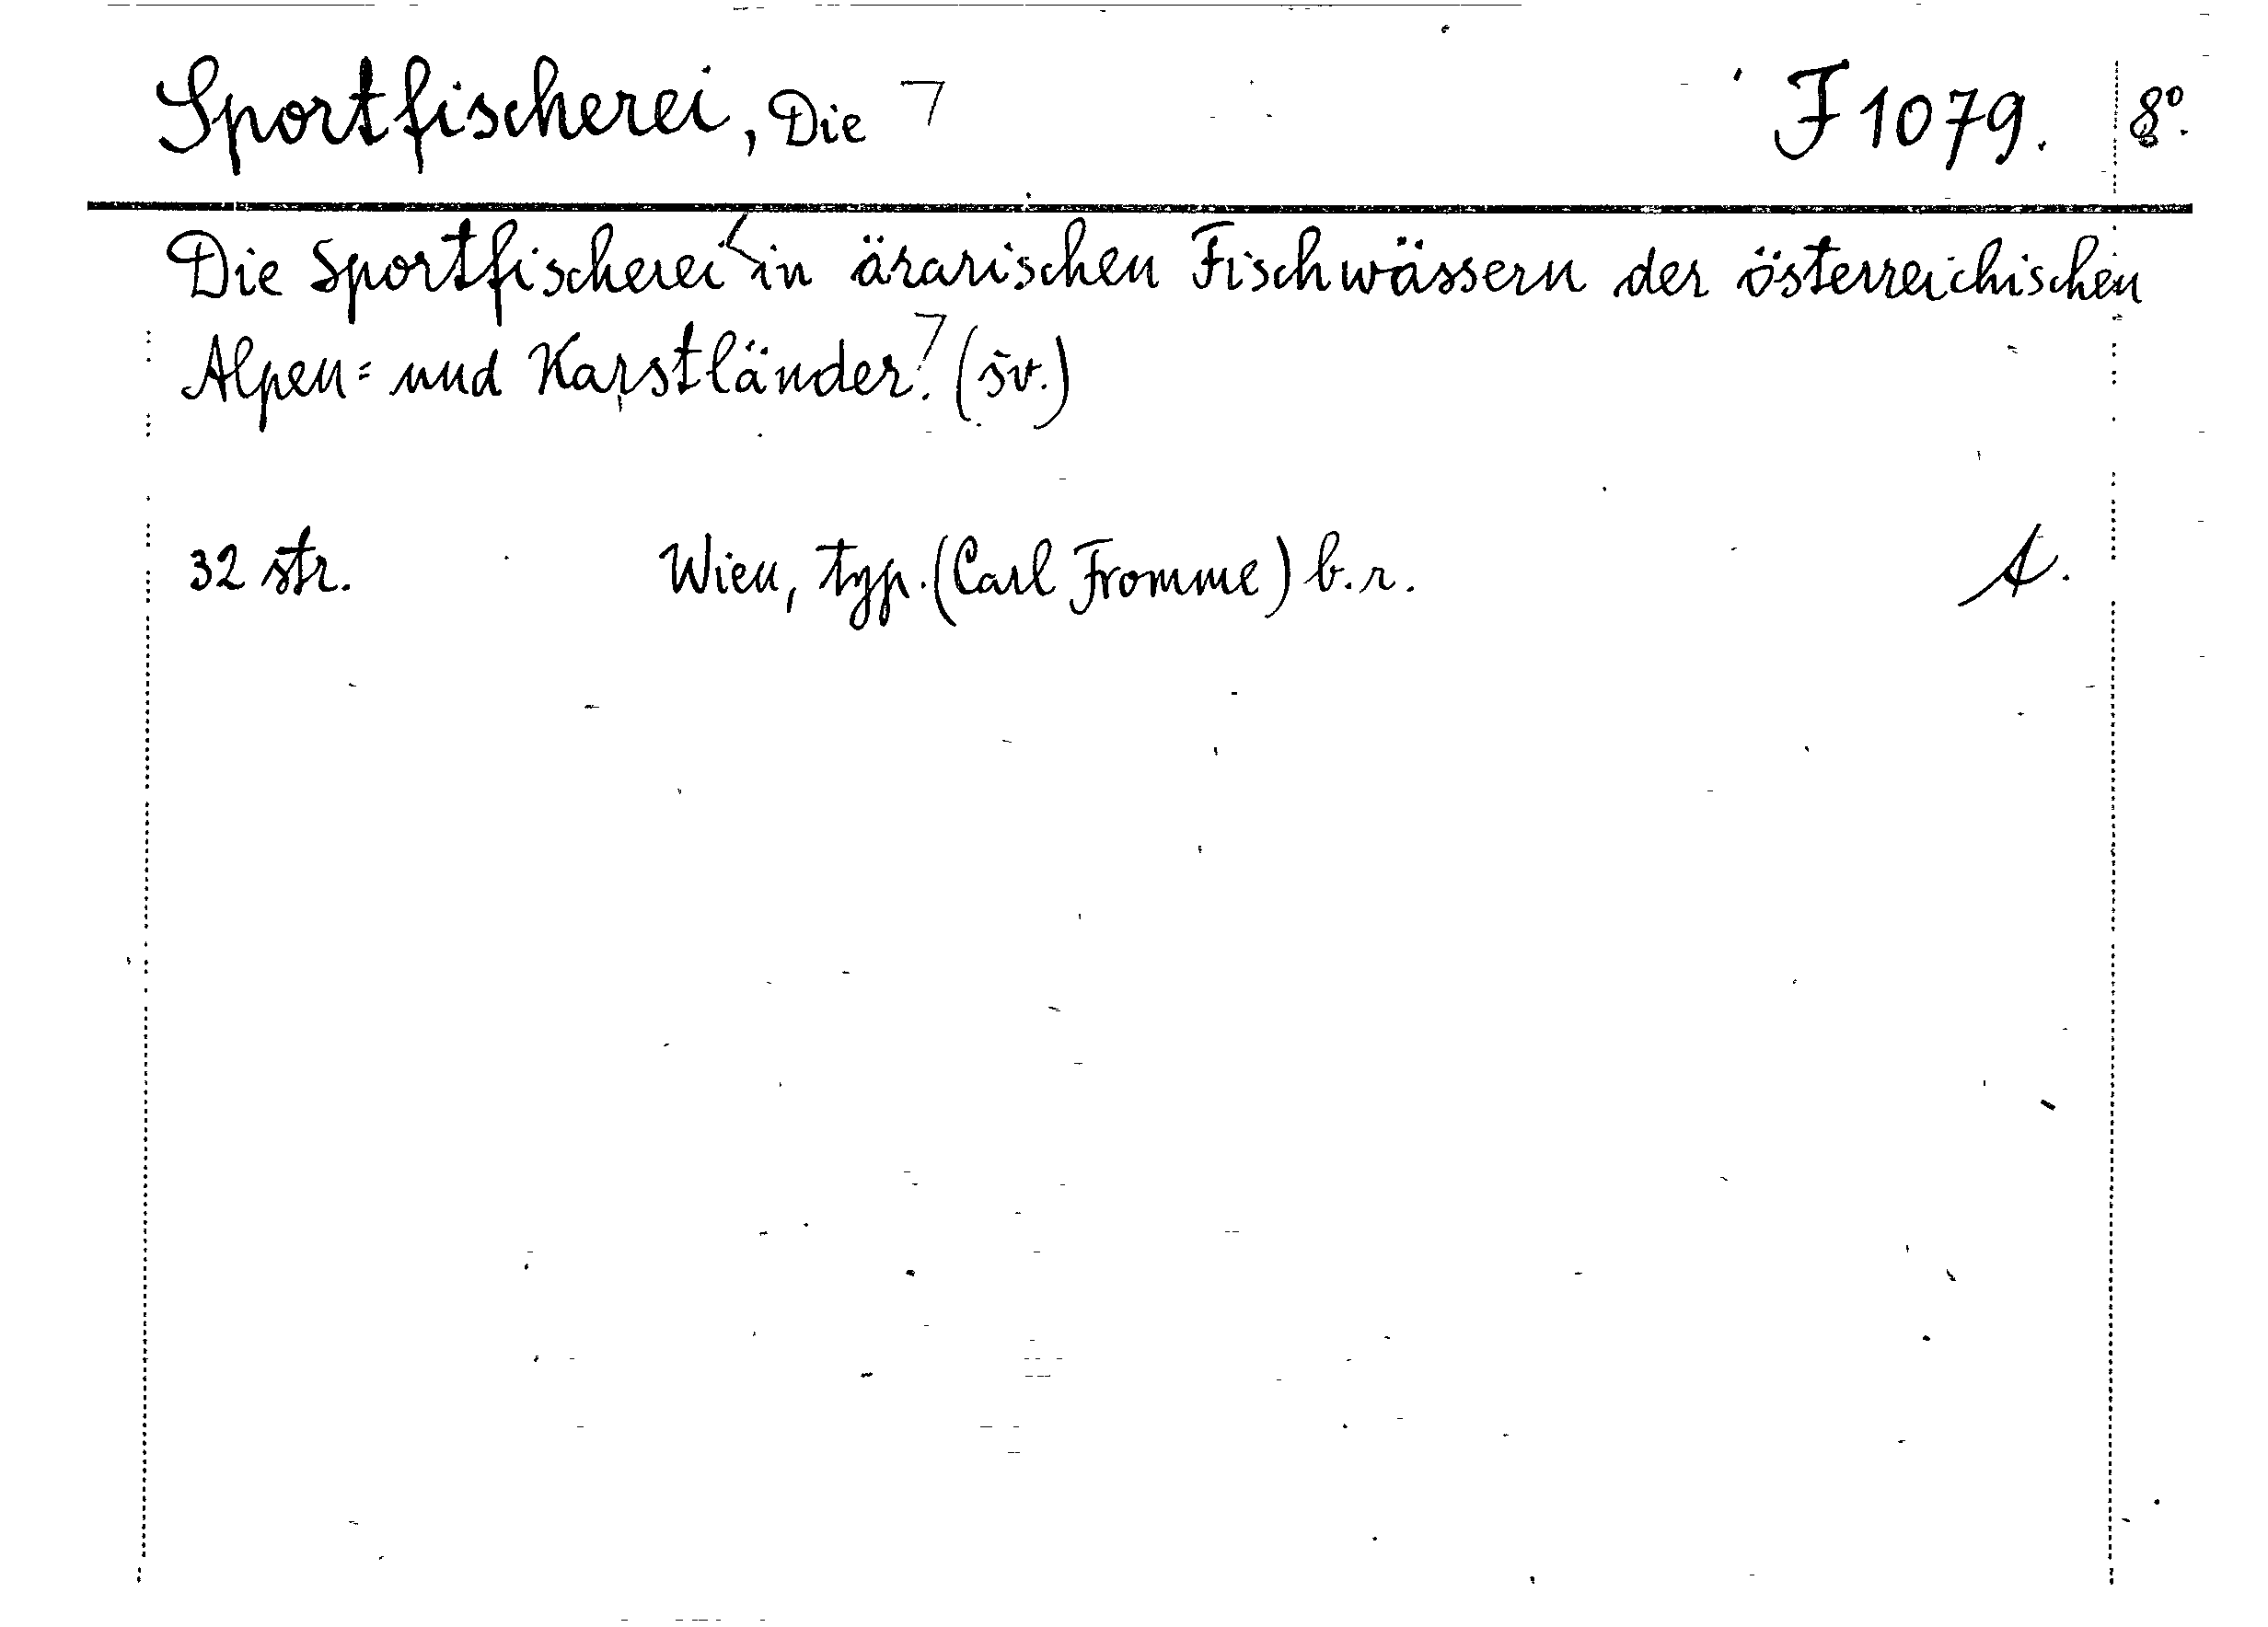 Sportfischerei, Die ⌉ F 1079. 8°.
Die Sportfischerei in ärarischen Fischwässern der österreichischen
Alpen= und Karstländer. (sv.)
32 str. Wien, typ. (Carl Fromme) b. r. A.